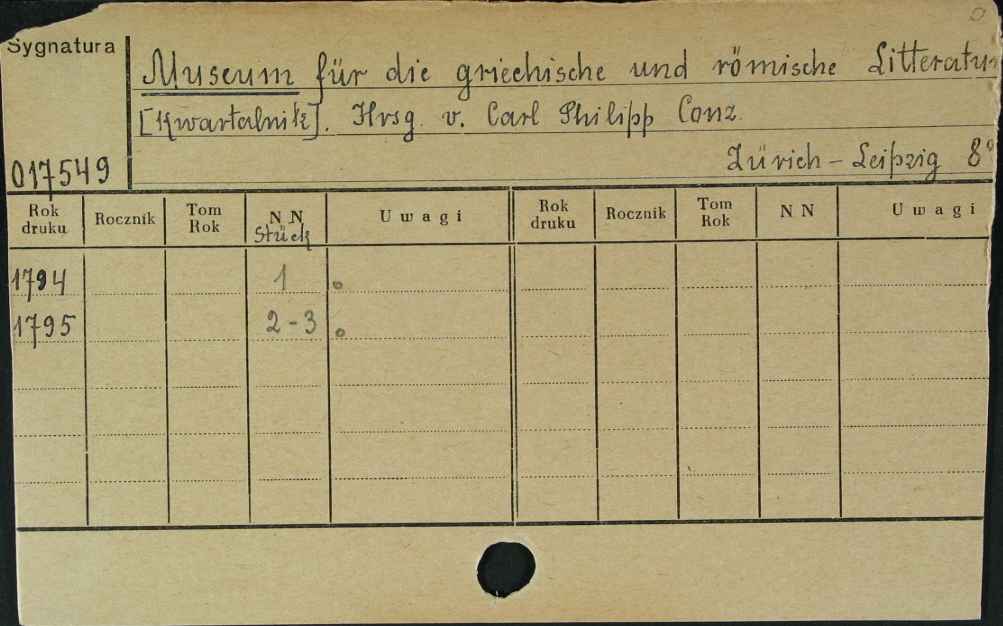 Sygnatura
Museum für die griechische und römische Litteratur
[Kwartalnik]. Hrsg. v. Carl Philipp Conz.
Zürich - Leipzig 8°
017549
Rok druku Rocznik Tom Rok NN Stück Uwagi Rok druku Rocznik Tom Rok NN Uwagi
1794 1
1795 2-3